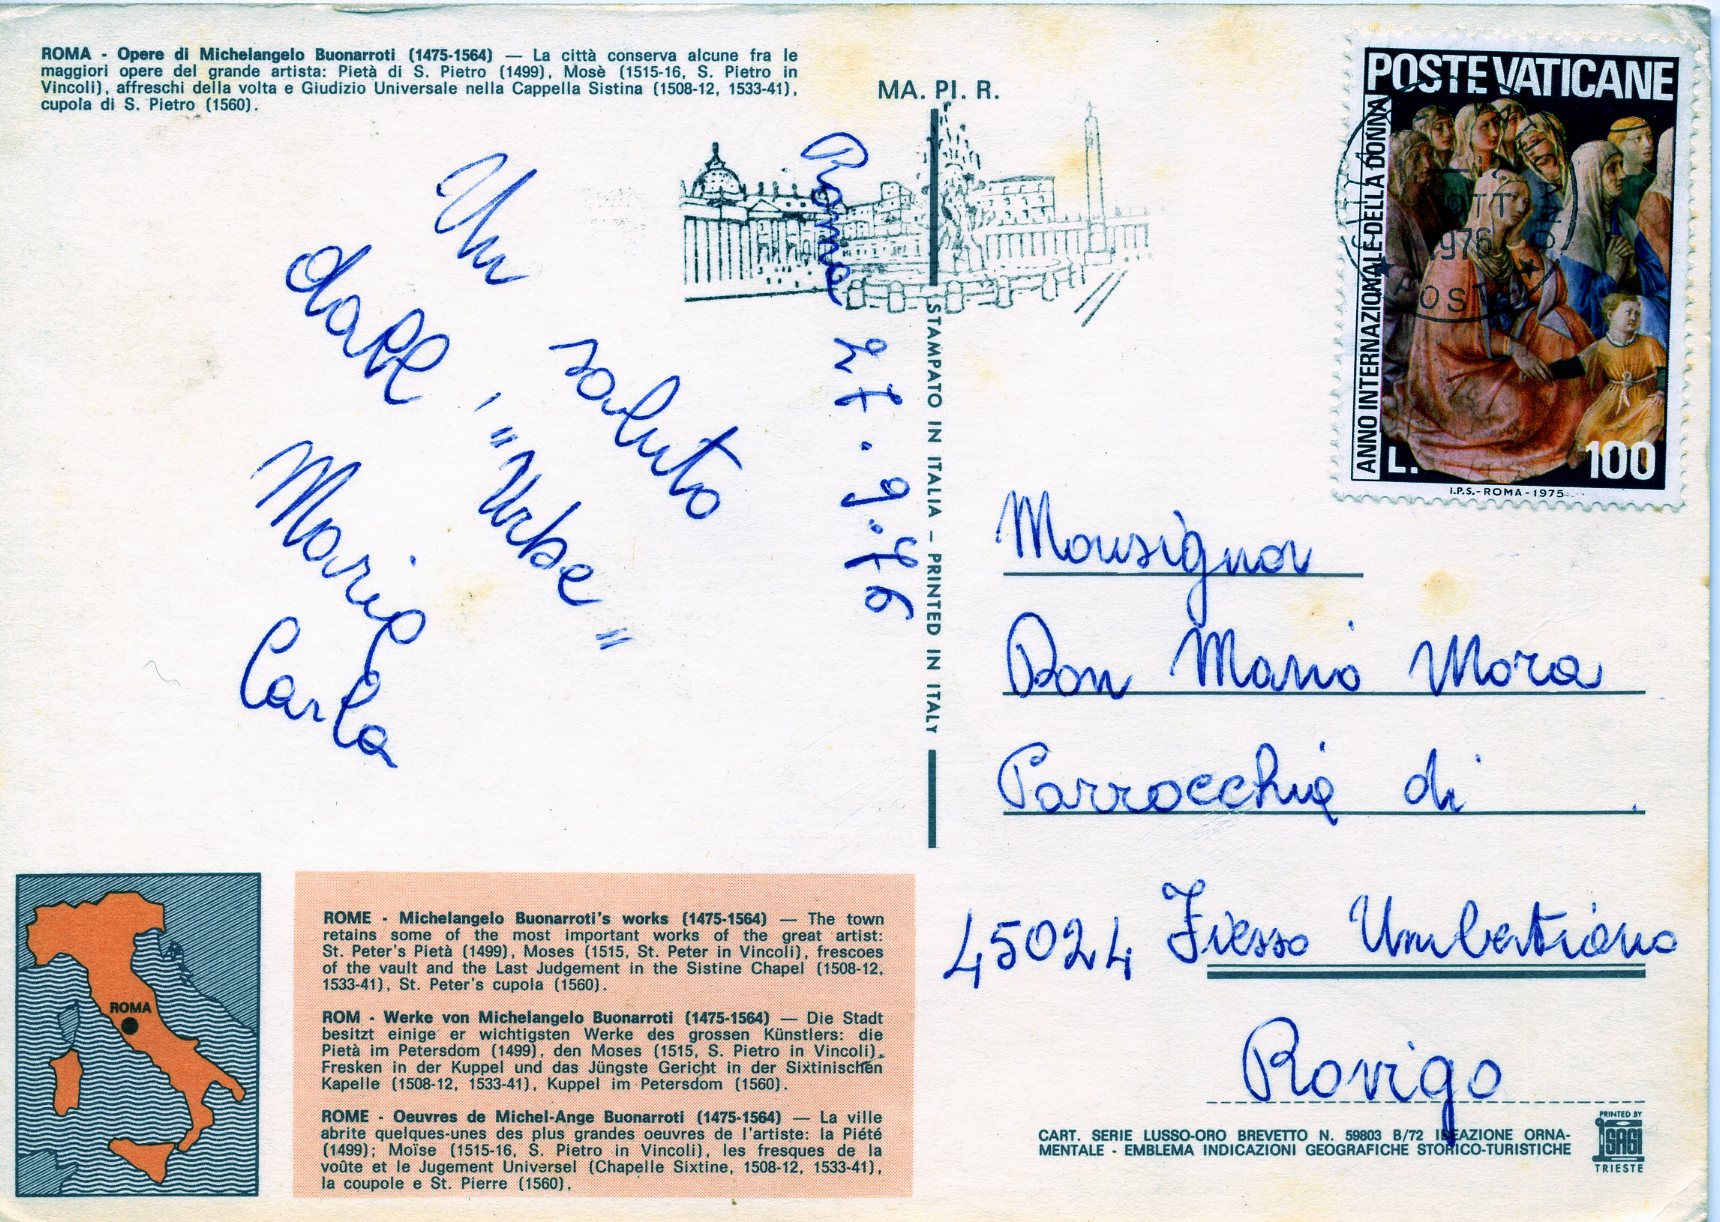 ROMA - Opere di Michelangelo Buonarroti (1475-1564) — La città conserva alcune fra le
maggiori opere del grande artista: Pietà di S. Pietro (1499), Mosè (1515-16, S. Pietro in
Vincoli), affreschi della volta e Giudizio Universale nella Cappella Sistina (1508-12, 1533-41),
cupola di S. Pietro (1560).
MA. PI. R.
Roma 27.9.76
Un saluto
dall'"Urbe"
Maria
Carla
STAMPATO IN ITALIA – PRINTED IN ITALY
POSTE VATICANE
ANNO INTERNAZIONALE DELLA DONNA
L. 100
I.P.S.-ROMA-1975
OTT
1976
POSTE
Monsignor
Don Mario Mora
Parrocchia di
45024 Fiesso Umbertiano
Rovigo
ROMA
ROME - Michelangelo Buonarroti's works (1475-1564) — The town
retains some of the most important works of the great artist:
St. Peter's Pietà (1499), Moses (1515, St. Peter in Vincoli), frescoes
of the vault and the Last Judgement in the Sistine Chapel (1508-12,
1533-41), St. Peter's cupola (1560).
ROM - Werke von Michelangelo Buonarroti (1475-1564) — Die Stadt
besitzt einige er wichtigsten Werke des grossen Künstlers: die
Pietà im Petersdom (1499), den Moses (1515, S. Pietro in Vincoli),
Fresken in der Kuppel und das Jüngste Gericht in der Sixtinischen
Kapelle (1508-12, 1533-41), Kuppel im Petersdom (1560).
ROME - Oeuvres de Michel-Ange Buonarroti (1475-1564) — La ville
abrite quelques-unes des plus grandes oeuvres de l'artiste: la Piété
(1499); Moïse (1515-16, S. Pietro in Vincoli), les fresques de la
voûte et le Jugement Universel (Chapelle Sixtine, 1508-12, 1533-41),
la coupole e St. Pierre (1560).
CART. SERIE LUSSO-ORO BREVETTO N. 59803 B/72 IDEAZIONE ORNA-
MENTALE - EMBLEMA INDICAZIONI GEOGRAFICHE STORICO-TURISTICHE
PRINTED BY
SAGI
TRIESTE